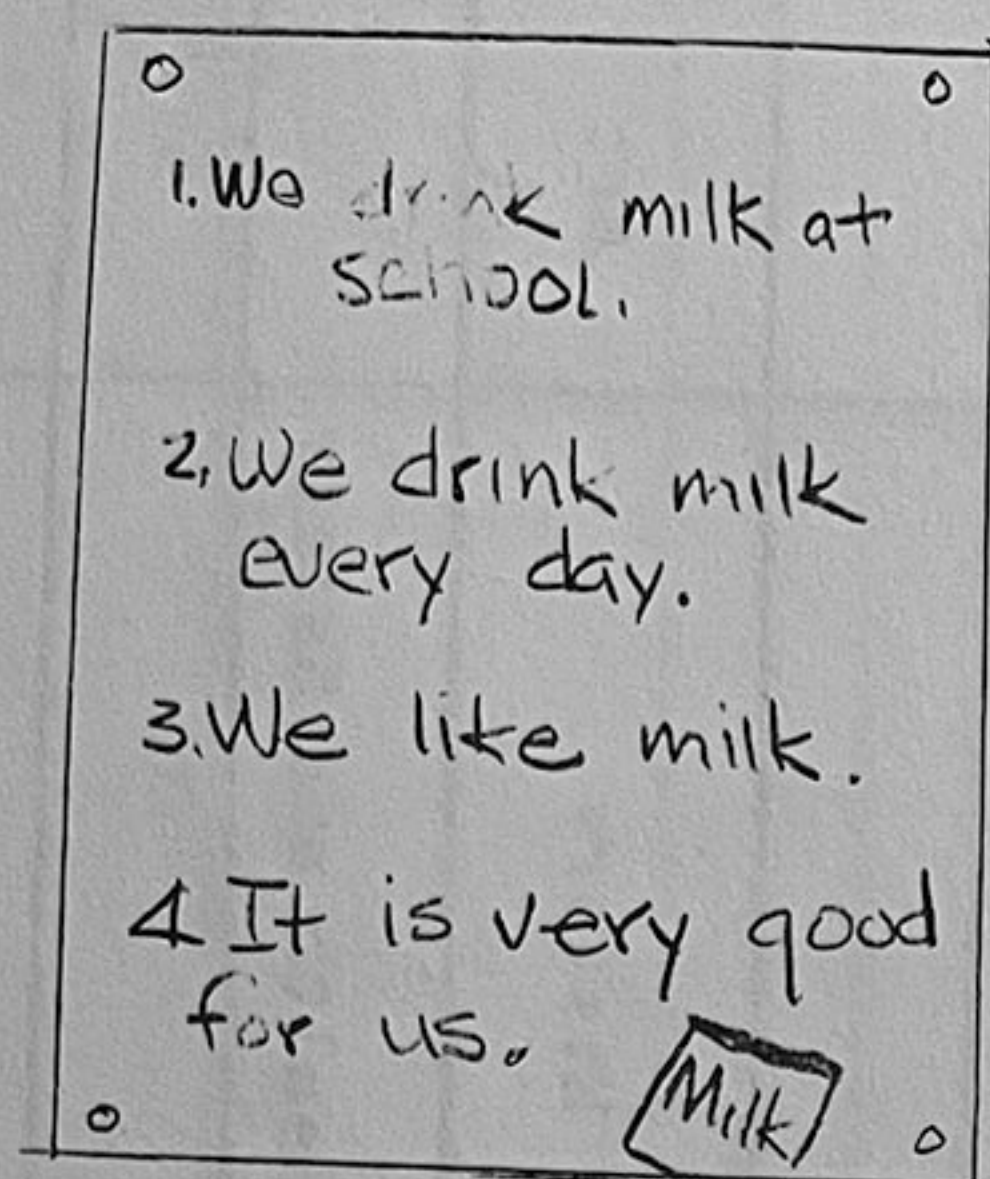 1. We drink milk at
school.
2. We drink milk
every day.
3. We like milk.
4. It is very good
for us.
Milk